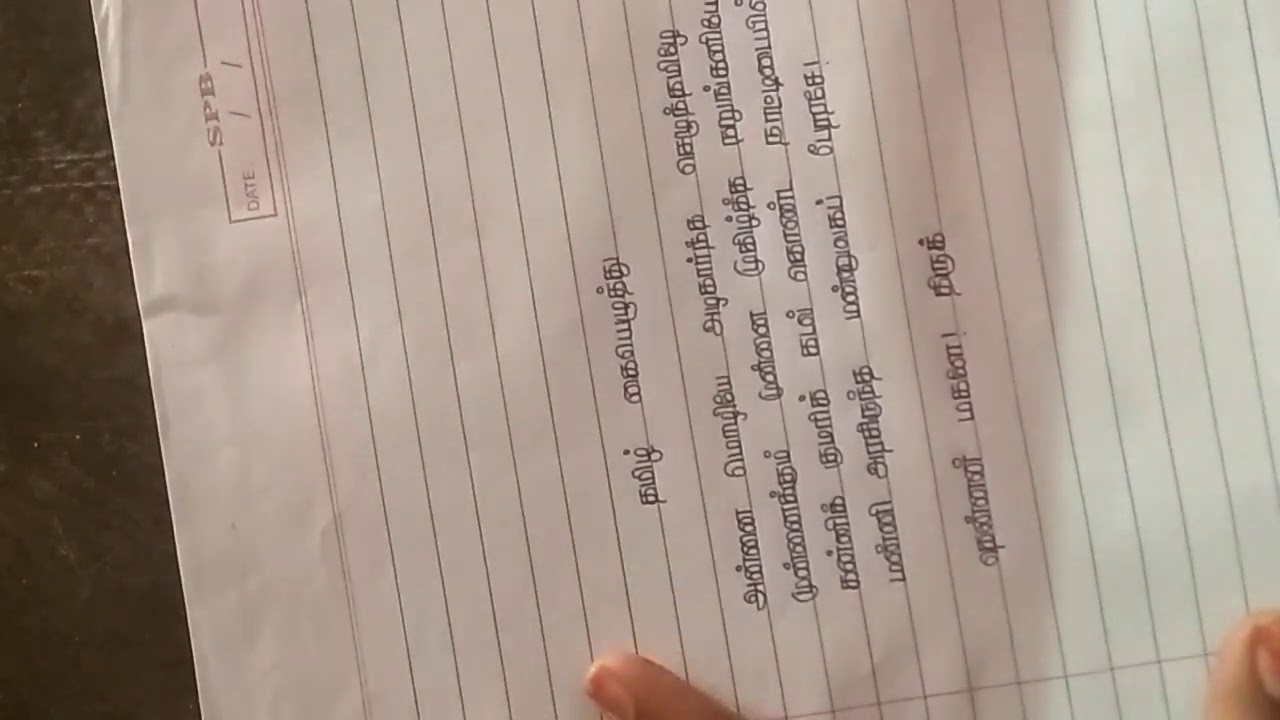 SPB
DATE / /
தமிழ் கையெழுத்து
அன்னை மொழியே அழகார்ந்த செழுந்தமிழே
முன்னைக்கும் முன்னை முகிழ்த்த நறுங்கனியே
கன்னிக் குமரிக் கடல் கொண்ட நாட்டிடையில்
மண்ணி அரசிருந்த மண்ணுலகப் பேரரசே!
தென்னன் மகளே! திருக்